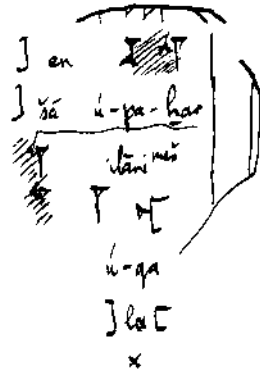 ] en
] šá ú-pa-ḫar
ilāni meš
ú-qa
] la [
x